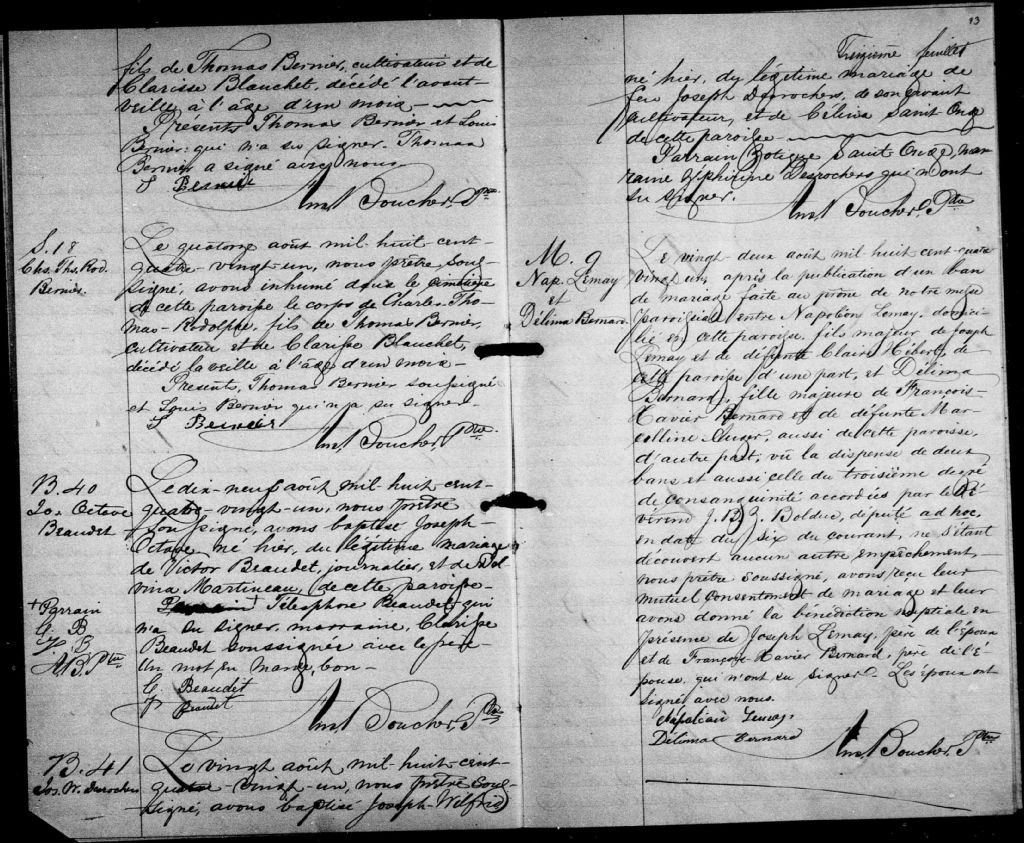 fils de Thomas Bernier, cultivateur et de
Clarisse Blanchet, décédé l'avant-
veille à l'âge d'un mois —
Présents Thomas Bernier et Louis
Bernier qui n'a su signer. Thomas
Bernier a signé avec nous
T Bernier
Ant. Boucher, Ptre
S. 18
Chs. Ths. Rod.
Bernier
Le quatorze août mil-huit-cent-
quatre-vingt-un, nous prêtre sous-
signé, avons inhumé dans le cimetière
de cette paroisse le corps de Charles-Tho-
mas-Rodolphe, fils de Thomas Bernier,
cultivateur et de Clarisse Blanchet,
décédé la veille à l'âge d'un mois-
Présents, Thomas Bernier soussigné
et Louis Bernier qui n'a su signer-
T Bernier
Ant. Boucher, Ptre
B. 40
Jos. Octave
Beaudet
Le dix-neuf août mil-huit-cent-
quatre-vingt-un, nous prêtre
soussigné, avons baptisé Joseph-
Octave né hier, du légitime mariage
de Victor Beaudet, journalier, et de Del
vina Martineau, de cette paroisse-
+ Parrain
C. B
V. B
A. B. Ptre
Télesphore Beaudet, qui
n'a su signer, marraine, Clarisse
Beaudet soussignée avec le père-
Un mot en marge, bon-
C. Beaudet
V Beaudet
Ant. Boucher, Ptre
B. 41
Jos. W. Desrochers
Le vingt août mil-huit-cent-
quatre-vingt-un, nous prêtre sous-
signé, avons baptisé Joseph-Wilfrid
13
Treizième feuillet
né hier, du légitime mariage de
feu Joseph Desrochers, de son vivant
cultivateur, et de Célina Saint Onge
de cette paroisse
Parrain Zotique Saint Onge, mar-
raine Zéphirine Desrochers qui n'ont
su signer.
Ant. Boucher, Ptre
M. 9
Nap. Lemay
et
Délima Bernard.
Le vingt-deux août mil huit cent quatre
vingt un, après la publication d'un ban
de mariage faite au prône de notre messe
paroissiale entre Napoléon Lemay, domici-
lié en cette paroisse, fils majeur de Joseph
Lemay et de défunte Claire Hébert, de
cette paroisse d'une part, et Délima
Bernard, fille majeure de François-
Xavier Bernard et de défunte Mar-
celline Auger, aussi de cette paroisse,
d'autre part, vu la dispense de deux
bans et aussi celle du troisième degré
de consanguinité accordées par le Ré-
vérend J. B. Z. Bolduc, député ad hoc,
en date du six du courant, ne s'étant
découvert aucun autre empêchement,
nous prêtre soussigné, avons reçu leur
mutuel consentement de mariage et leur
avons donné la bénédiction nuptiale en
présence de Joseph Lemay, père de l'époux
et de François-Xavier Bernard, père de l'é-
pouse, qui n'ont su signer. Les époux ont
signé avec nous.
Napoléon Lemay
Délima Bernard
Ant. Boucher, Ptre